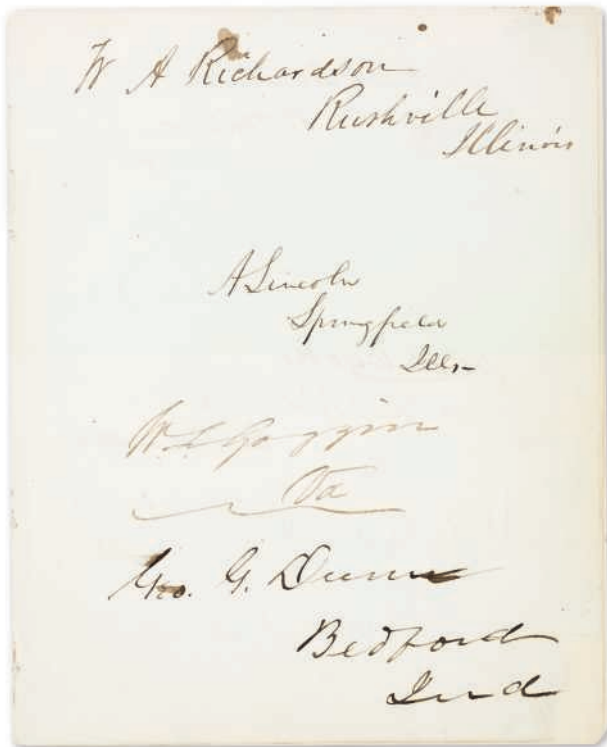 W A Richardson
Rushville
Illinois
A Lincoln
Springfield
Ills
W L Goggin
Va
Geo. G. Dunn
Bedford
Ind